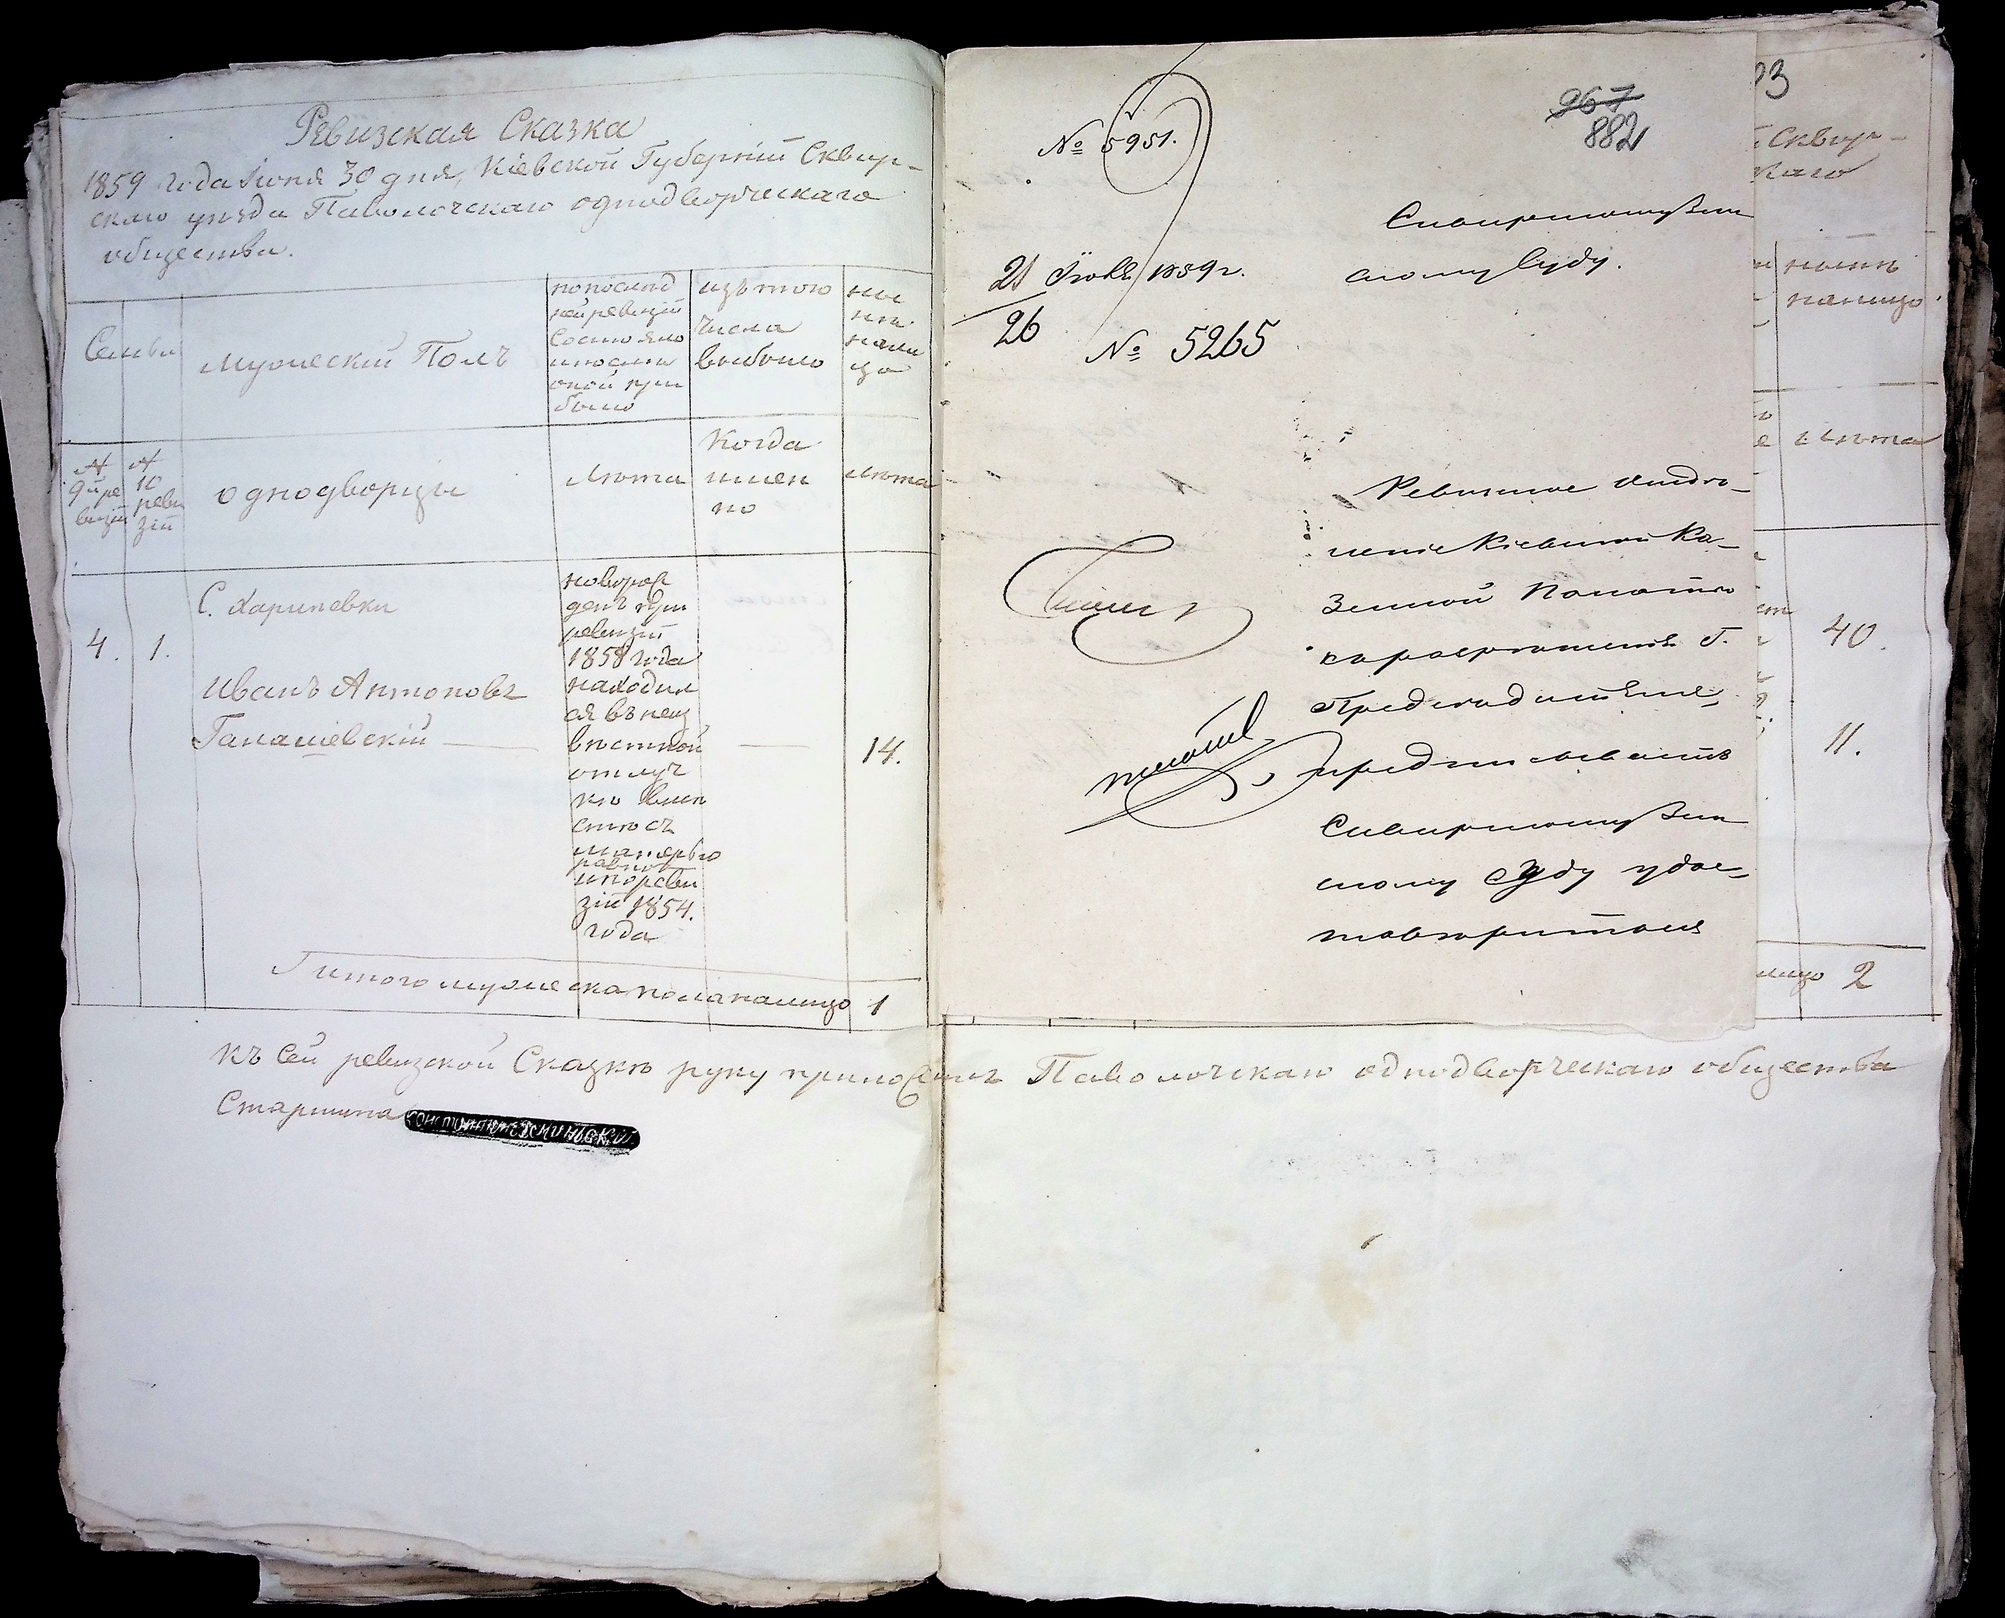 Ревизская Сказка
1859 года Іюня 30 дня, Кіевской Губерніи Сквир-
скаго уѣзда Паволочскаго однодворческаго
общества.
Семьи
Мужескій Полъ
по послѣд
ней ревизіи
состояло
и послѣ
оной при
было
изъ того
числа
выбыло
ны
нѣ
нали
цо
№
9й ре
визіи
№
10
реви
зіи
однодворцы
Лѣта
Когда
имен
но
Лѣта
4.
1.
С. Харипевки
Иванъ Антоновъ
Ганашевскій
новорож
денъ при
ревизіи
1858 года
находил
ся въ неиз
вѣстной
отлуч
кѣ вмѣ
стѣ съ
матерью
равно
и по реви
зіи 1854.
года
14.
Итого мужеска пола налицо 1
Къ сей ревизской Сказкѣ руку приложилъ Паволочскаго однодворческаго общества
Старшина
№ 5951.
967
882
21 Іюля 1859 г.
26
№ 5265
Сквирскому Зем
скому Суду.
Ревизное Отдѣ-
леніе Кіевской Ка-
зенной Палаты
по распоряженію Г.
Предсѣдателя,
предписываетъ
Сквирскому Зем
скому Суду удос-
товѣриться
93
Сквир-
скаго
нынѣ
налицо
Лѣта
40.
11.
лицо 2